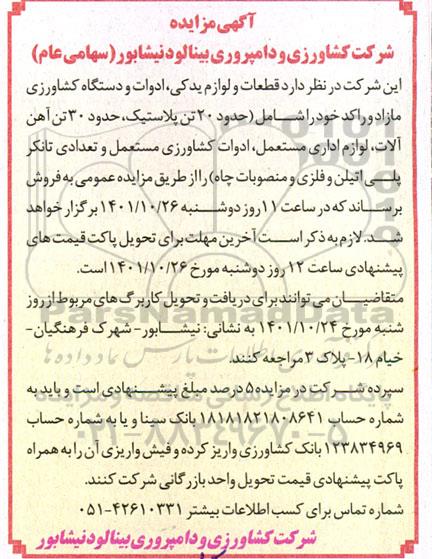 آگهی مزایده
شرکت کشاورزی و دامپروری بینالود نیشابور (سهامی عام)
این شرکت در نظر دارد قطعات و لوازم یدکی، ادوات و دستگاه کشاورزی
مازاد و راکد خود را شامل (حدود ۲۰ تن پلاستیک، حدود ۳۰ تن آهن
آلات، لوازم اداری مستعمل، ادوات کشاورزی مستعمل و تعدادی تانکر
پلی اتیلن و فلزی و منصوبات چاه) را از طریق مزایده عمومی به فروش
برساند که در ساعت ۱۱ روز دوشنبه ۱۴۰۱/۱۰/۲۶ برگزار خواهد
شد. لازم به ذکر است آخرین مهلت برای تحویل پاکت قیمت های
پیشنهادی ساعت ۱۲ روز دوشنبه مورخ ۱۴۰۱/۱۰/۲۶ است.
متقاضیان می توانند برای دریافت و تحویل کاربرگ های مربوط از روز
شنبه مورخ ۱۴۰۱/۱۰/۲۴ به نشانی: نیشابور- شهرک فرهنگیان-
خیام ۱۸- پلاک ۳ مراجعه کنند.
سپرده شرکت در مزایده ۵ درصد مبلغ پیشنهادی است و باید به
شماره حساب ۱۸۱۸۱۸۲۱۸۰۸۶۴۱ بانک سینا و یا به شماره حساب
۱۲۳۸۳۴۹۶۹ بانک کشاورزی واریز کرده و فیش واریزی آن را به همراه
پاکت پیشنهادی قیمت تحویل واحد بازرگانی شرکت کنند.
شماره تماس برای کسب اطلاعات بیشتر ۴۲۶۱۰۳۳۱-۰۵۱
شرکت کشاورزی و دامپروری بینالود نیشابور
ParsNamadData
پایگاه اطلاع رسانی مناقصه و مزایده
۰۲۱-۸۸۳۴۹۶۷۰-۵